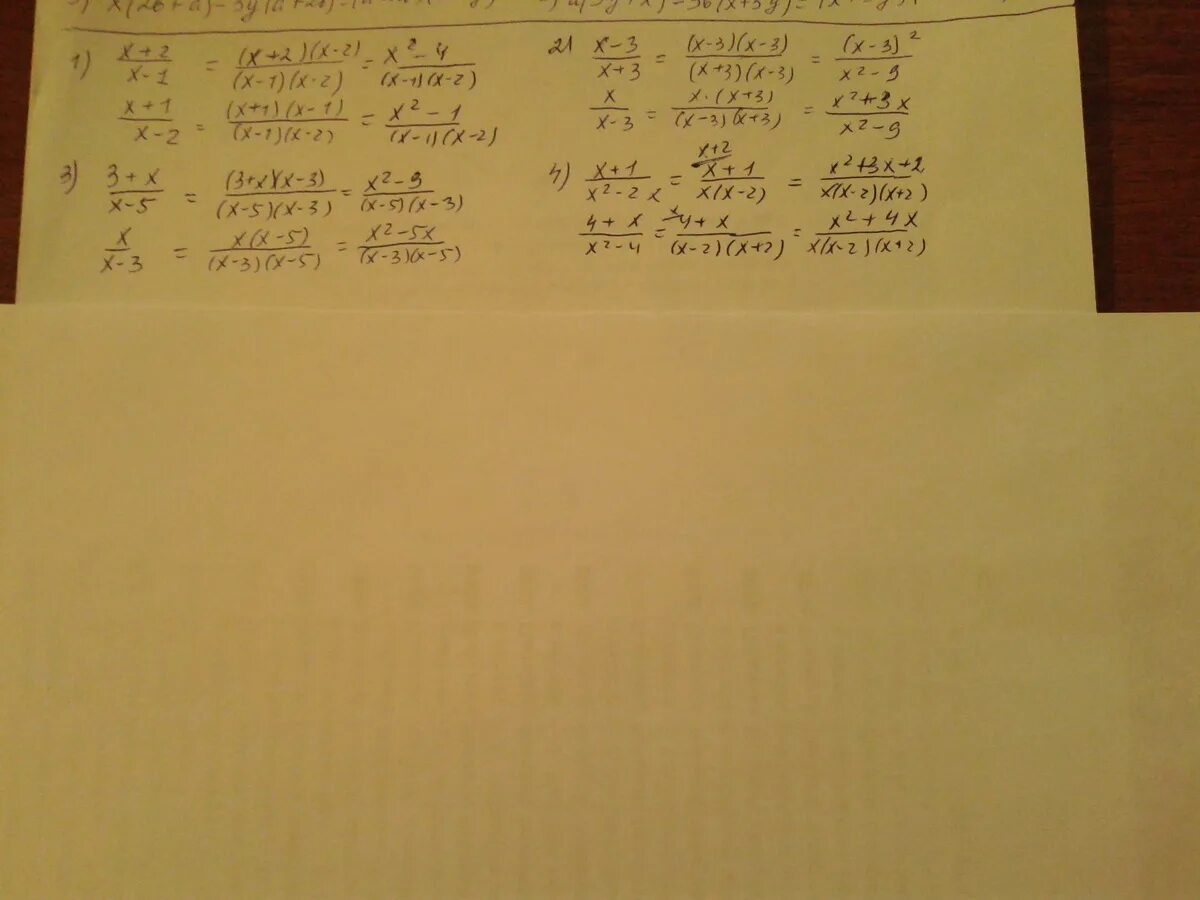 x(2b+a)-3y(a+2b)=
1) (x+2)/(x-1) = (x+2)(x-2)/(x-1)(x-2) = (x²-4)/(x-1)(x-2)
(x+1)/(x-2) = (x+1)(x-1)/(x-1)(x-2) = (x²-1)/(x-1)(x-2)
2) (x-3)/(x+3) = (x-3)(x-3)/(x+3)(x-3) = (x-3)²/(x²-9)
x/(x-3) = x·(x+3)/(x-3)(x+3) = (x²+3x)/(x²-9)
3) (3+x)/(x-5) = (3+x)(x-3)/(x-5)(x-3) = (x²-9)/(x-5)(x-3)
x/(x-3) = x(x-5)/(x-3)(x-5) = (x²-5x)/(x-3)(x-5)
4) (x+1)/(x²-2x) = x+2 (x+1)/x(x-2) = (x²+3x+2)/x(x-2)(x+2)
(4+x)/(x²-4) = x (4+x)/(x-2)(x+2) = (x²+4x)/x(x-2)(x+2)